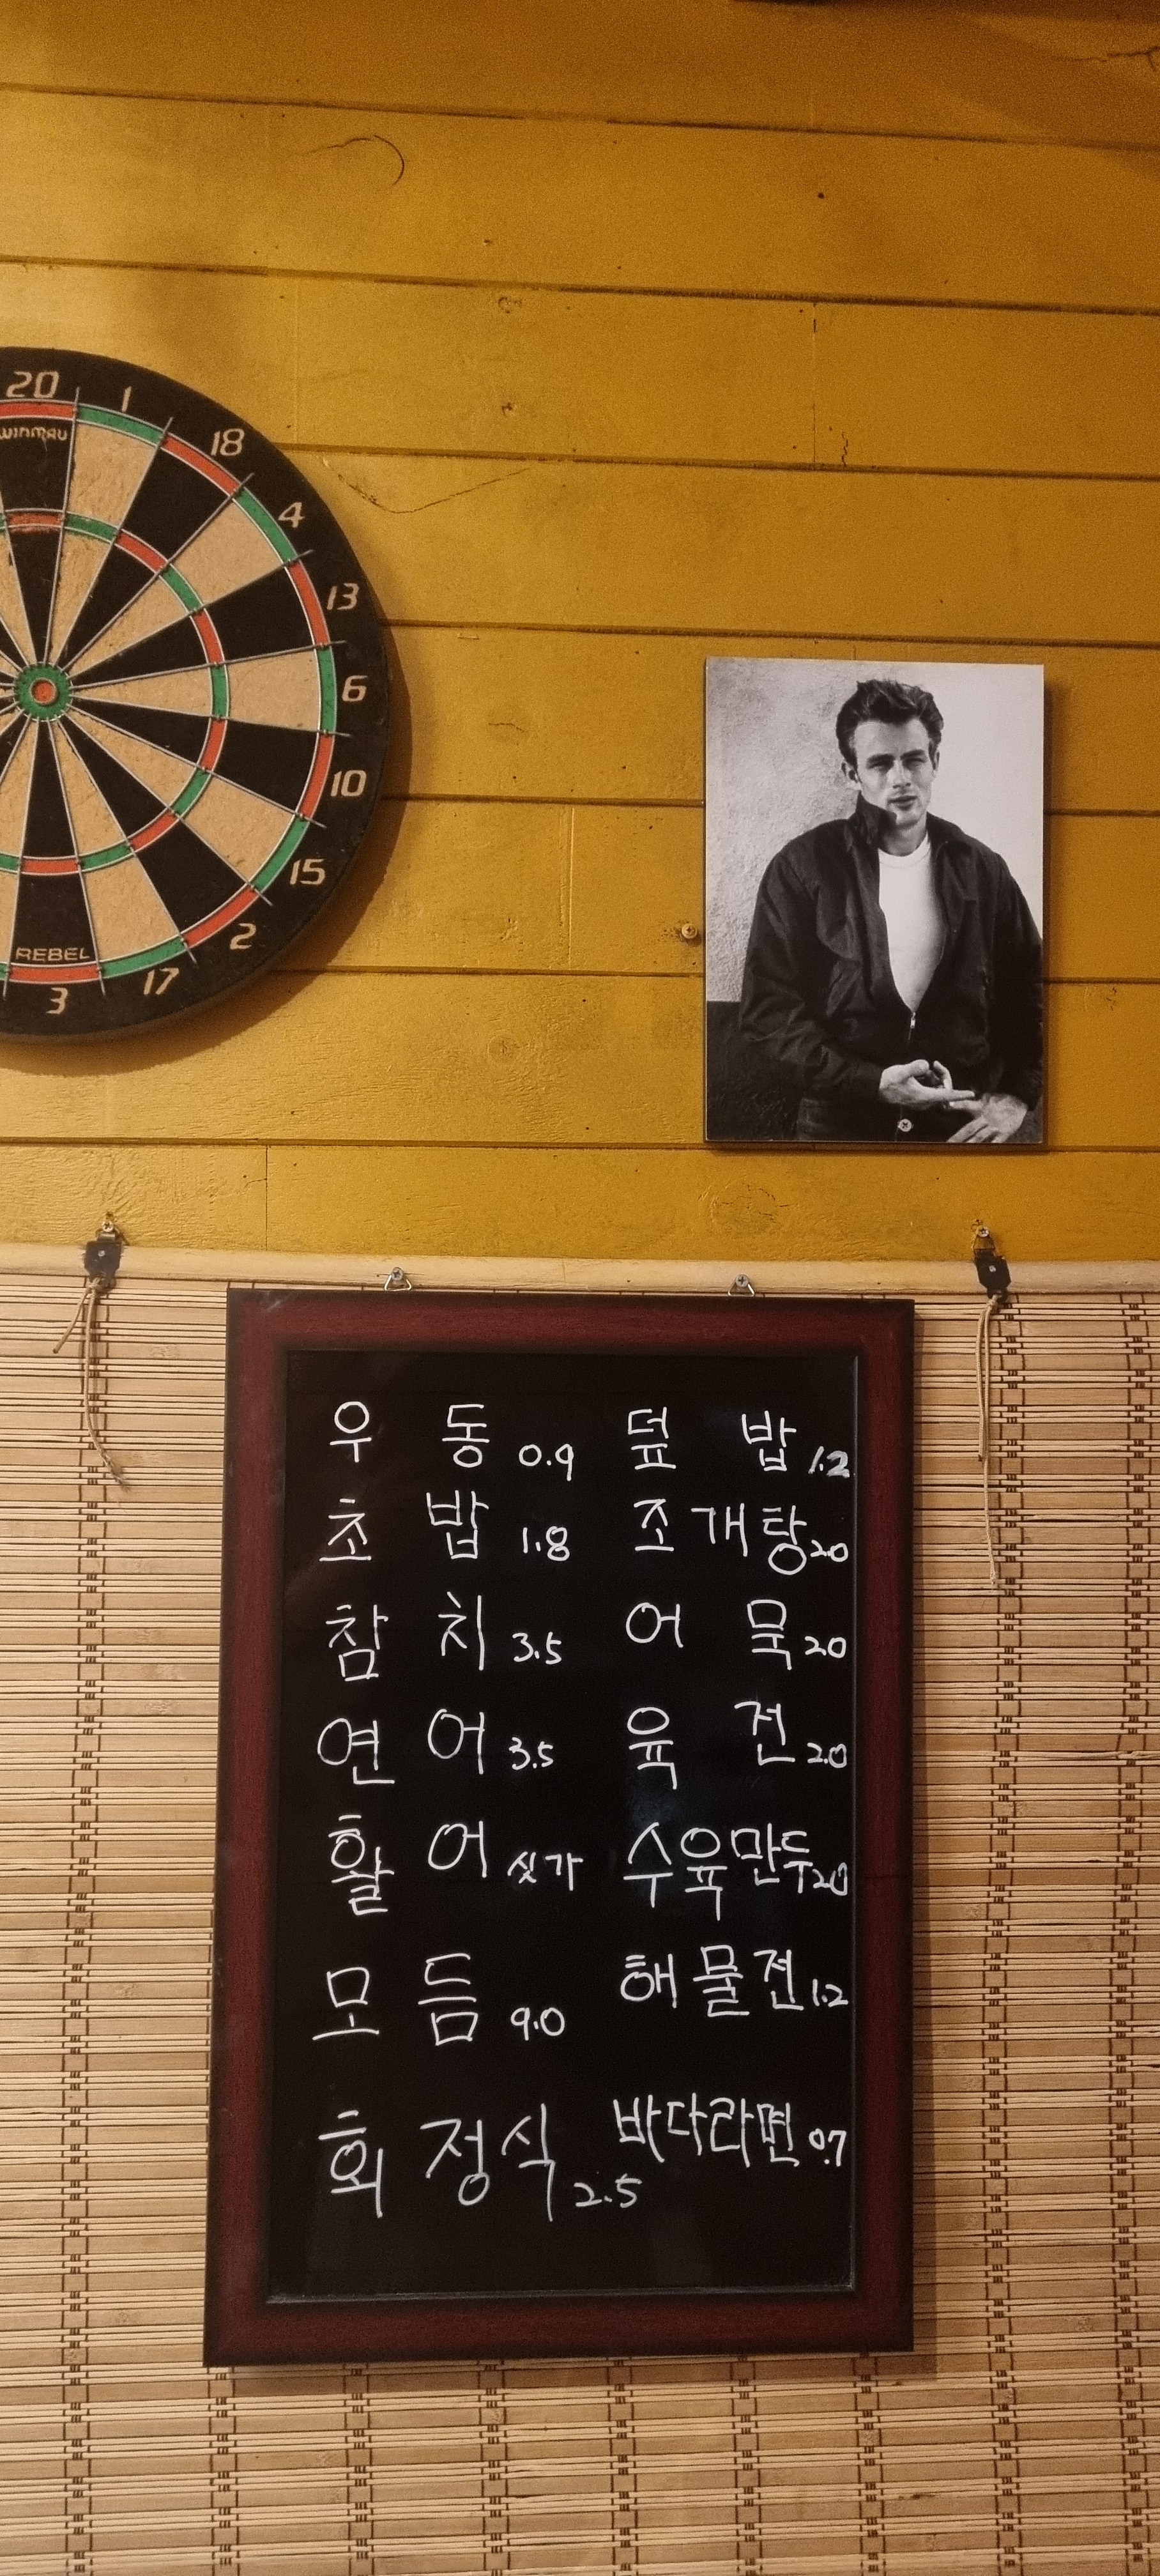 20 1 18 4 13 6 10 15 2 17 3
winmau
REBEL
우동 0.9 덮밥 1.2
초밥 1.8 조개탕 2.0
참치 3.5 어묵 2.0
연어 3.5 육전 2.0
활어 싯가 수육만두 2.0
모듬 9.0 해물전 1.2
회정식 2.5 바다라면 0.7